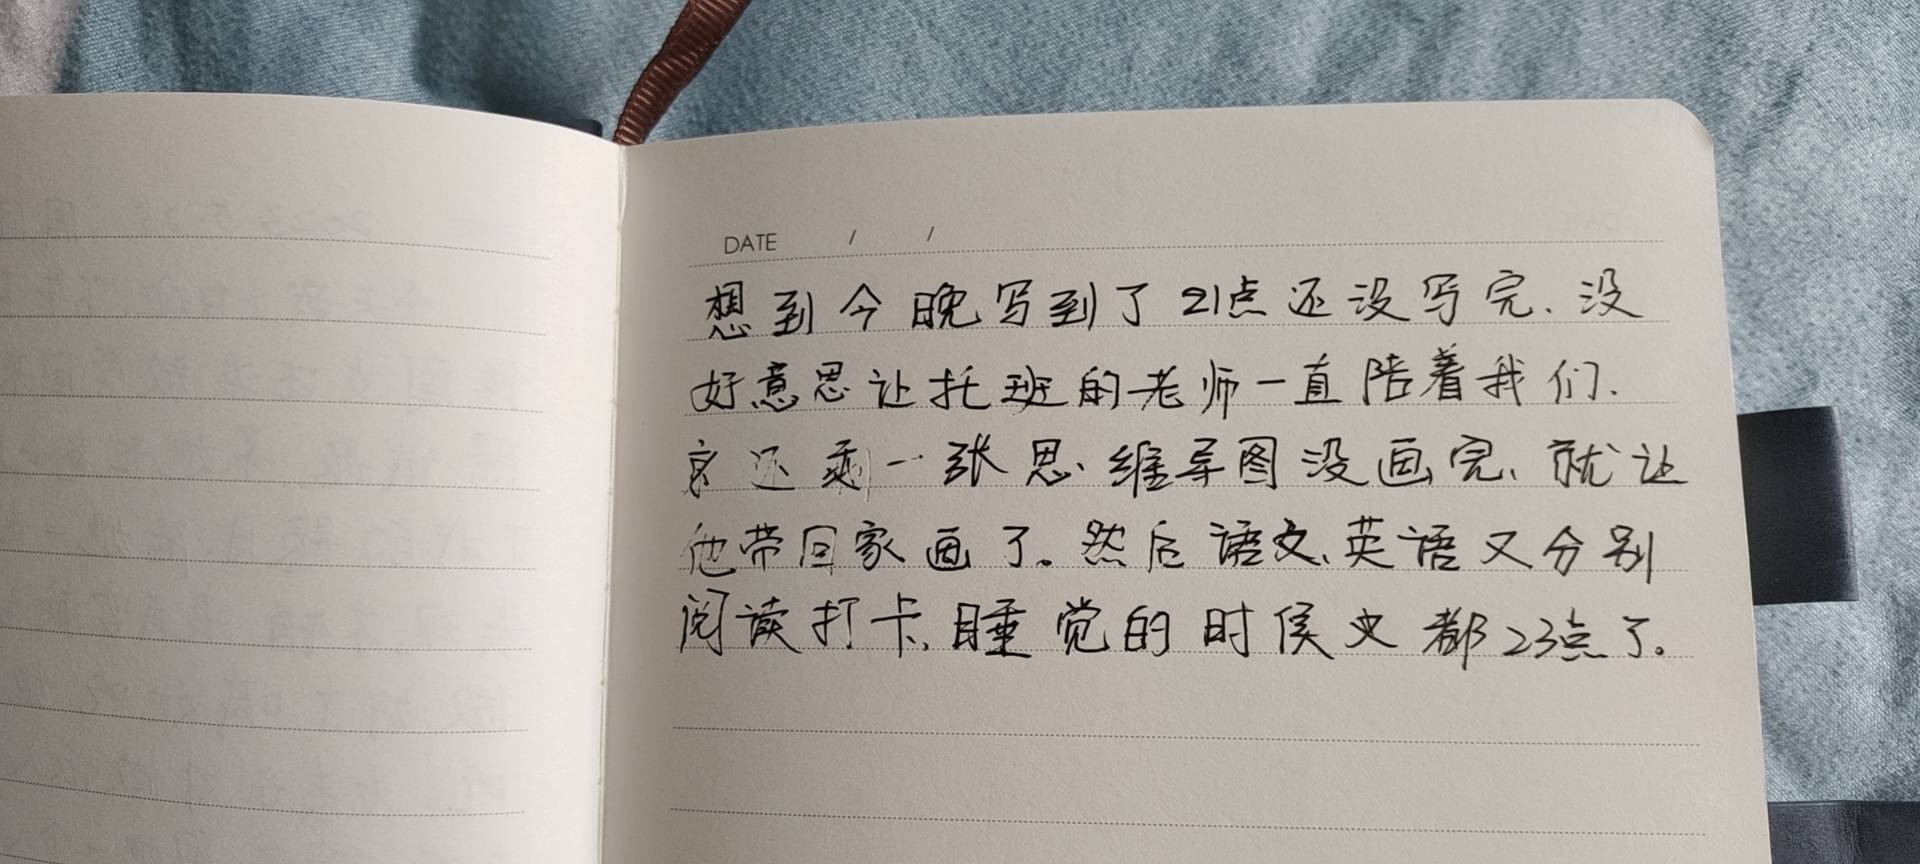 DATE / /
想到今晚写到了21点还没写完、没
好意思让托班的老师一直陪着我们.
还剩一张思维导图没画完、就让
他带回家画了。然后语文、英语又分别
阅读打卡、睡觉的时候又都23点了。